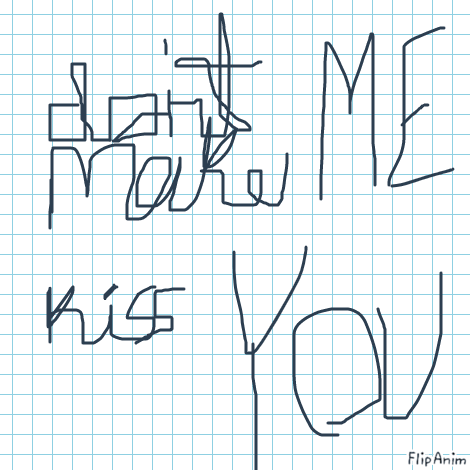 don't ME
make
kiss YOU
FlipAnim